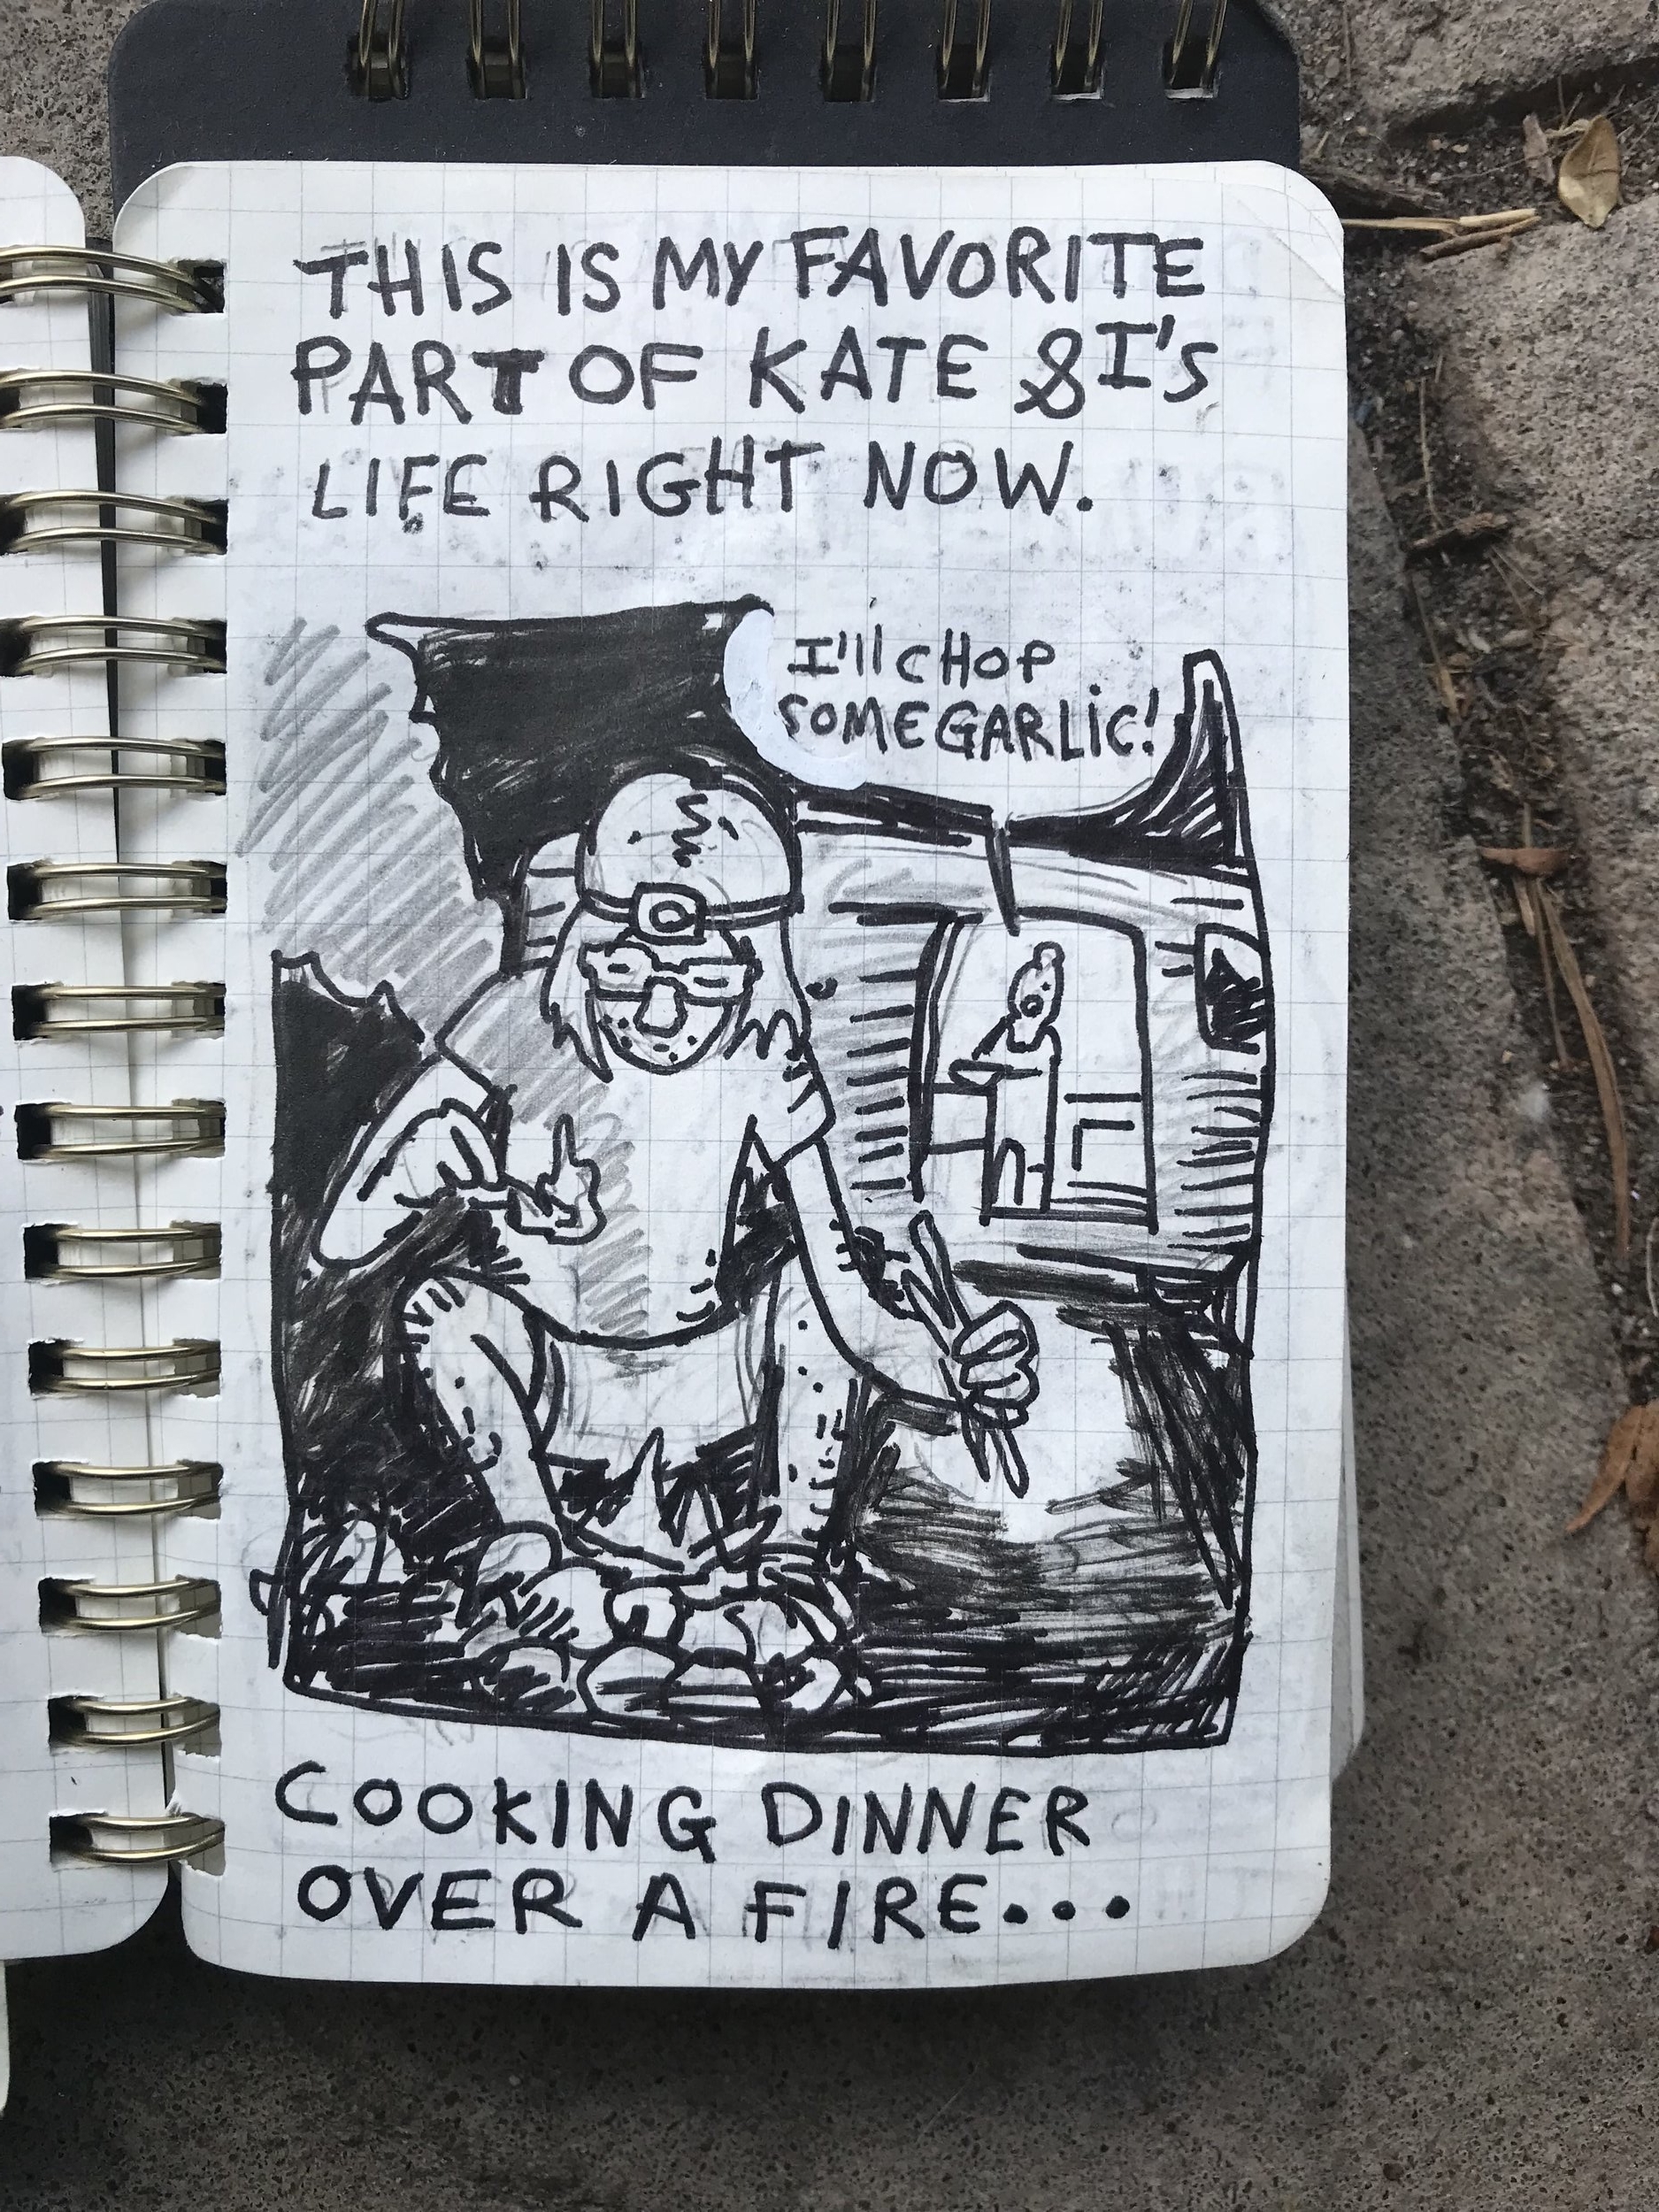 THIS IS MY FAVORITE
PART OF KATE & I'S
LIFE RIGHT NOW.
I'll CHOP
SOME GARLiC!
COOKING DINNER
OVER A FIRE...